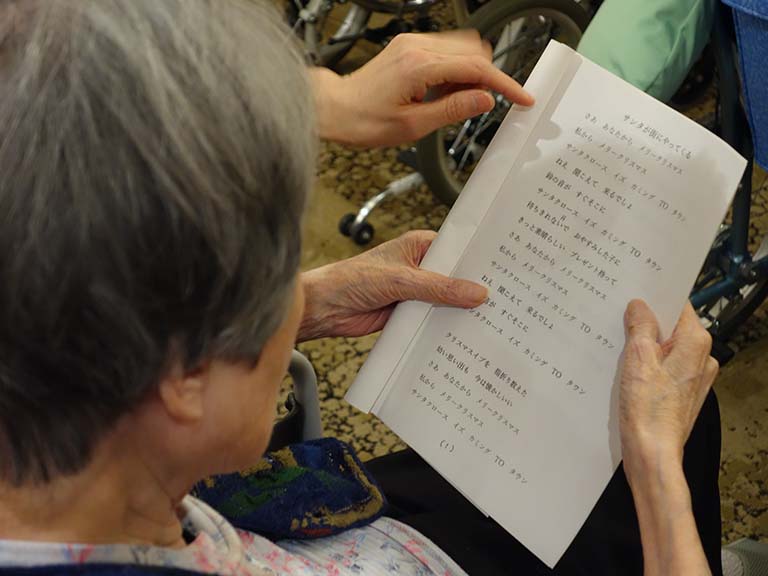 サンタが街にやってくる
さあ あなたから メリークリスマス
私から メリークリスマス
サンタクロース イズ カミング TO タウン
ねえ 聞こえて 来るでしょ
鈴の音が すぐそこに
サンタクロース イズ カミング TO タウン
待ちきれないで おやすみした子に
きっと素晴らしい プレゼント持って
さあ あなたから メリークリスマス
私から メリークリスマス
サンタクロース イズ カミング TO タウン
ねえ 聞こえて 来るでしょ
音が すぐそこに
サンタクロース イズ カミング TO タウン
クリスマスイブを 指折り数えた
幼い思い出も 今は懐かしいい
さあ あなたから メリークリスマス
私から メリークリスマス
サンタクロース イズ カミング TO タウン
(1)